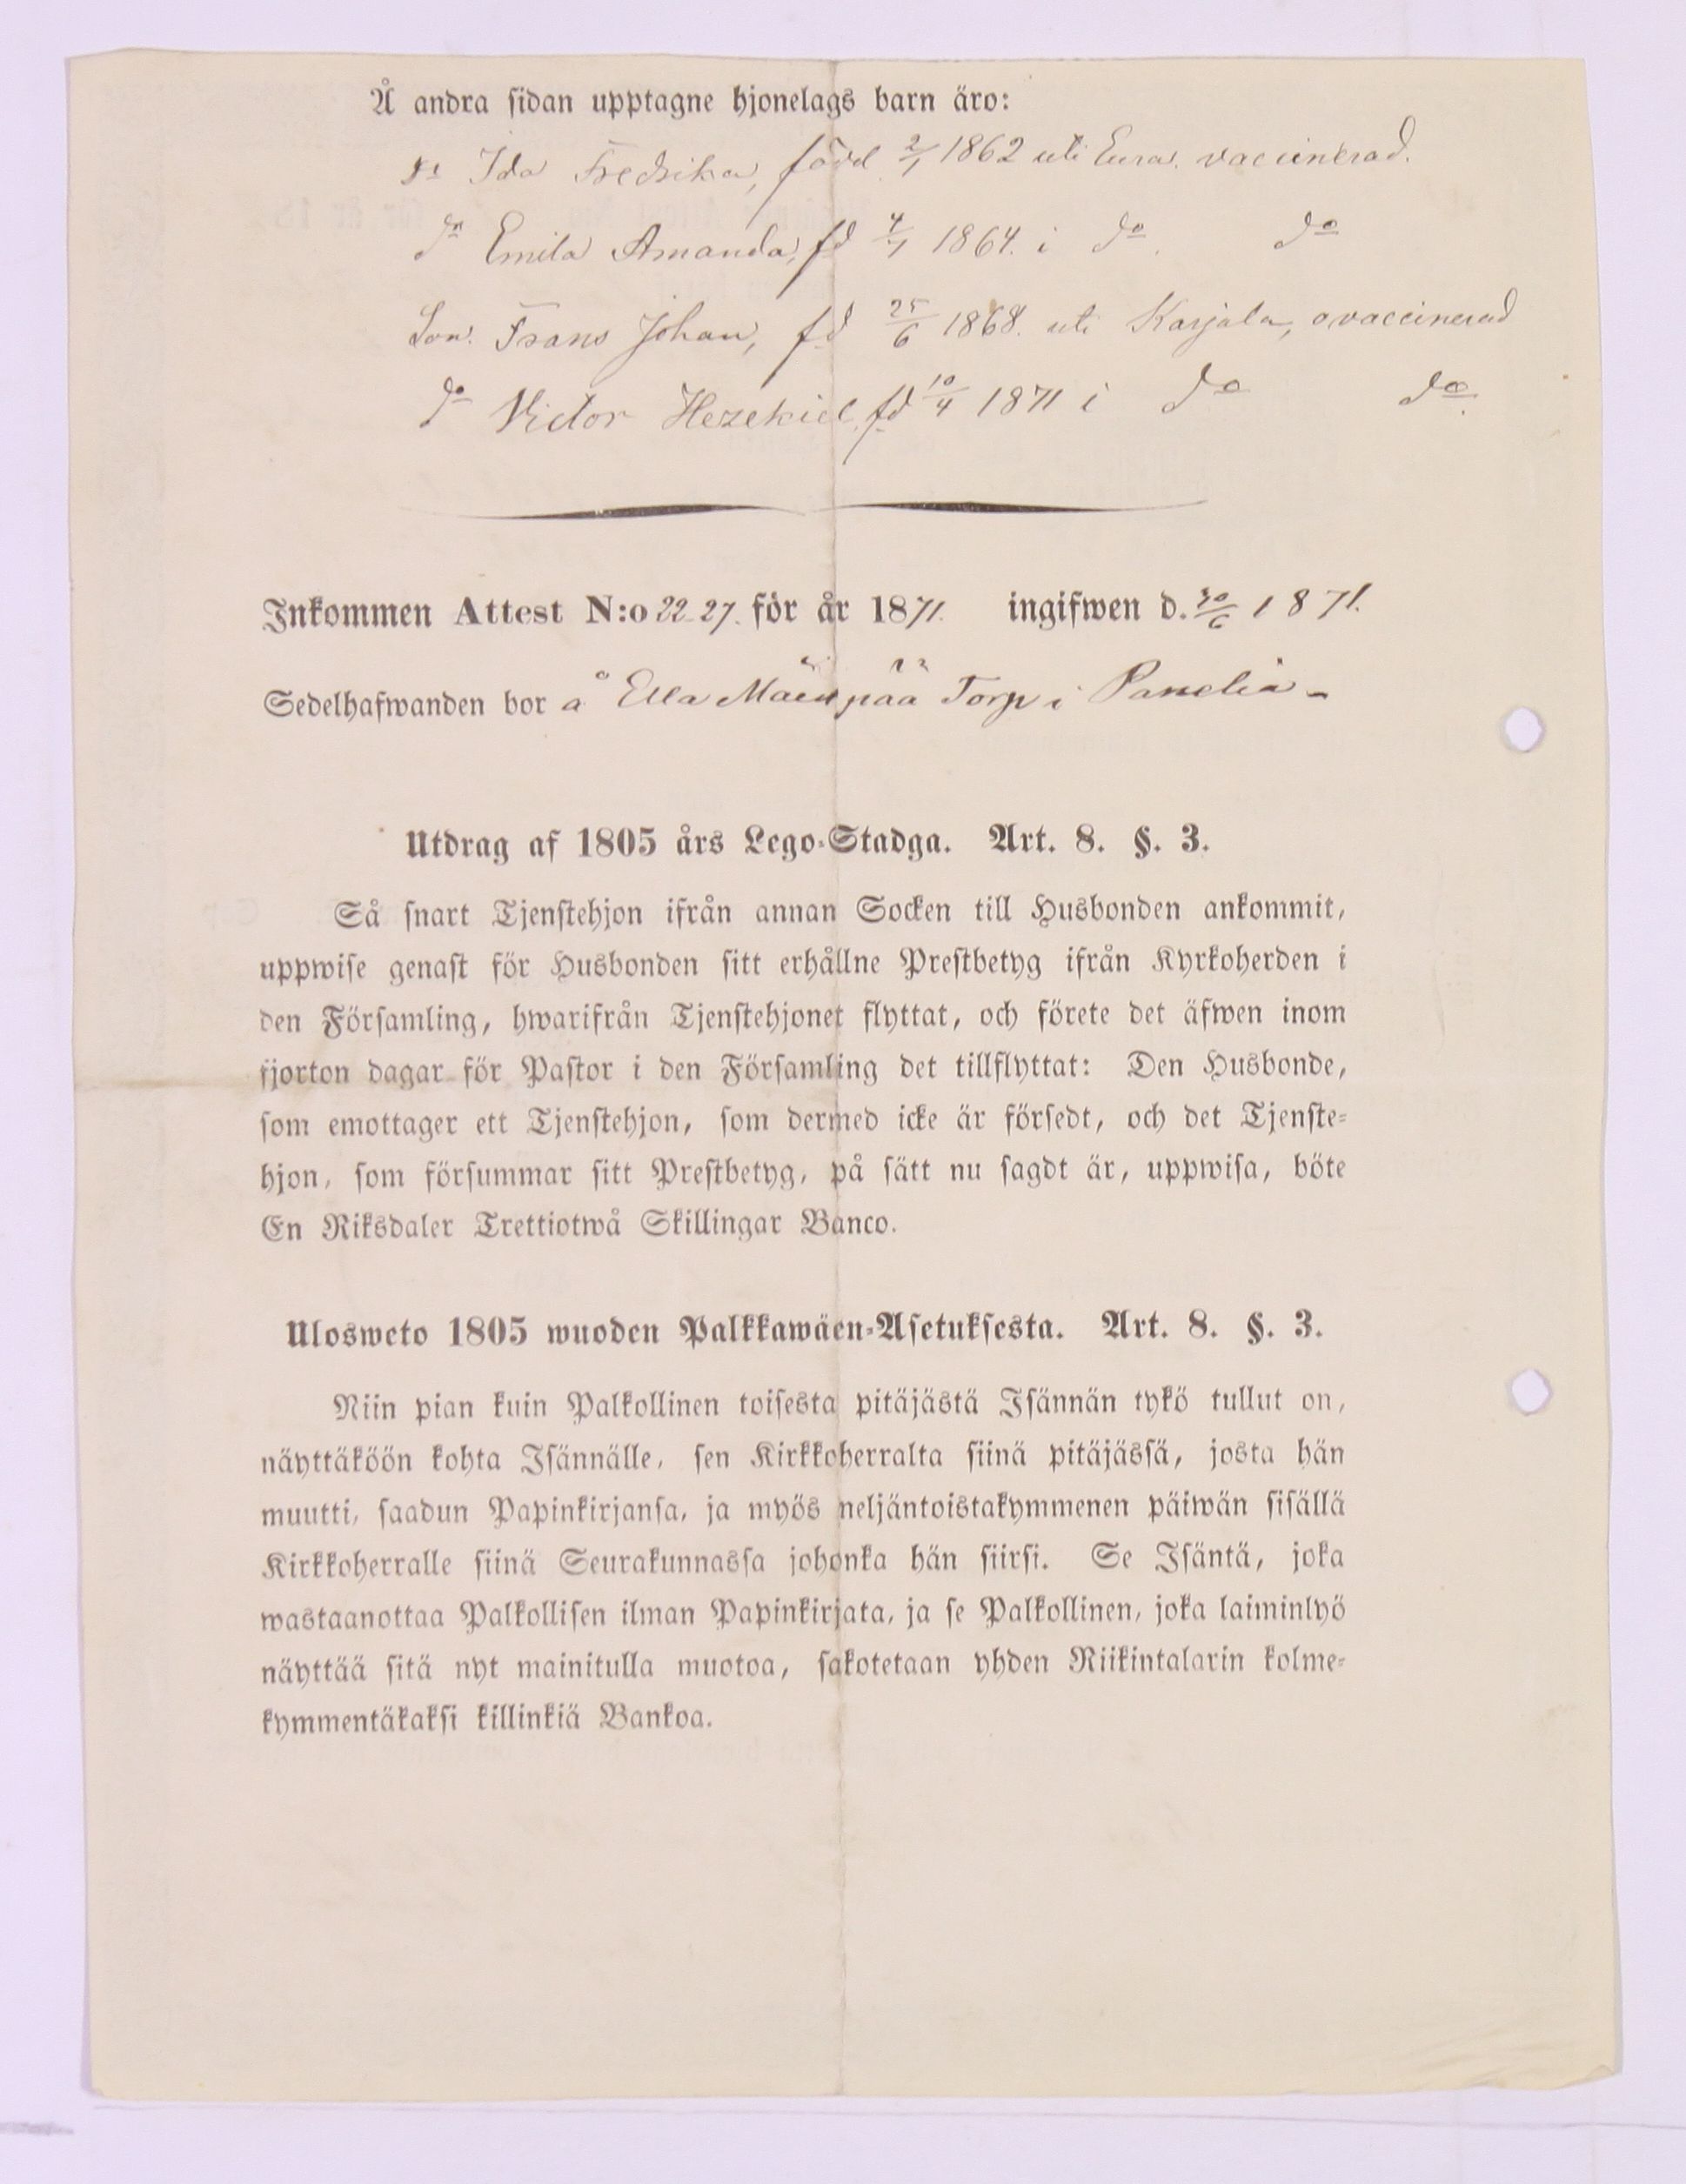 Å andra sidan upptagne hjonelags barn äro:
Dr Ida Fredrika, född 2/1 1862 uti Eura. vaccinerad.
do Emila Amanda, fd 4/1 1864. i do. do
Son. Frans Johan, fd 25/6 1868. uti Karjala, ovaccinerad
do Victor Hezekiel, fd 10/4 1871 i do do.
Inkommen Attest N:o 22 27. för år 1871. ingifwen d. 30/6 1871.
Sedelhafwanden bor å Ella Mäenpää Torp i Panelia
Utdrag af 1805 års Lego-Stadga. Art. 8. §. 3.
Så snart Tjenstehjon ifrån annan Socken till Husbonden ankommit,
uppwise genast för Husbonden sitt erhållne Prestbetyg ifrån Kyrkoherden i
den Församling, hwarifrån Tjenstehjonet flyttat, och förete det äfwen inom
fjorton dagar för Pastor i den Församling det tillflyttat: Den Husbonde,
som emottager ett Tjenstehjon, som dermed icke är försedt, och det Tjenste-
hjon, som försummar sitt Prestbetyg, på sätt nu sagdt är, uppwisa, böte
En Riksdaler Trettiotwå Skillingar Banco.
Ulosweto 1805 wuoden Palkkawäen-Asetuksesta. Art. 8. §. 3.
Niin pian kuin Palkollinen toisesta pitäjästä Isännän tykö tullut on,
näyttäköön kohta Isännälle, sen Kirkkoherralta siinä pitäjässä, josta hän
muutti, saadun Papinkirjansa, ja myös neljäntoistakymmenen päiwän sisällä
Kirkkoherralle siinä Seurakunnassa johonka hän siirsi. Se Isäntä, joka
wastaanottaa Palkollisen ilman Papinkirjata, ja se Palkollinen, joka laiminlyö
näyttää sitä nyt mainitulla muotoa, sakotetaan yhden Riikintalarin kolme-
kymmentäkaksi killinkiä Bankoa.